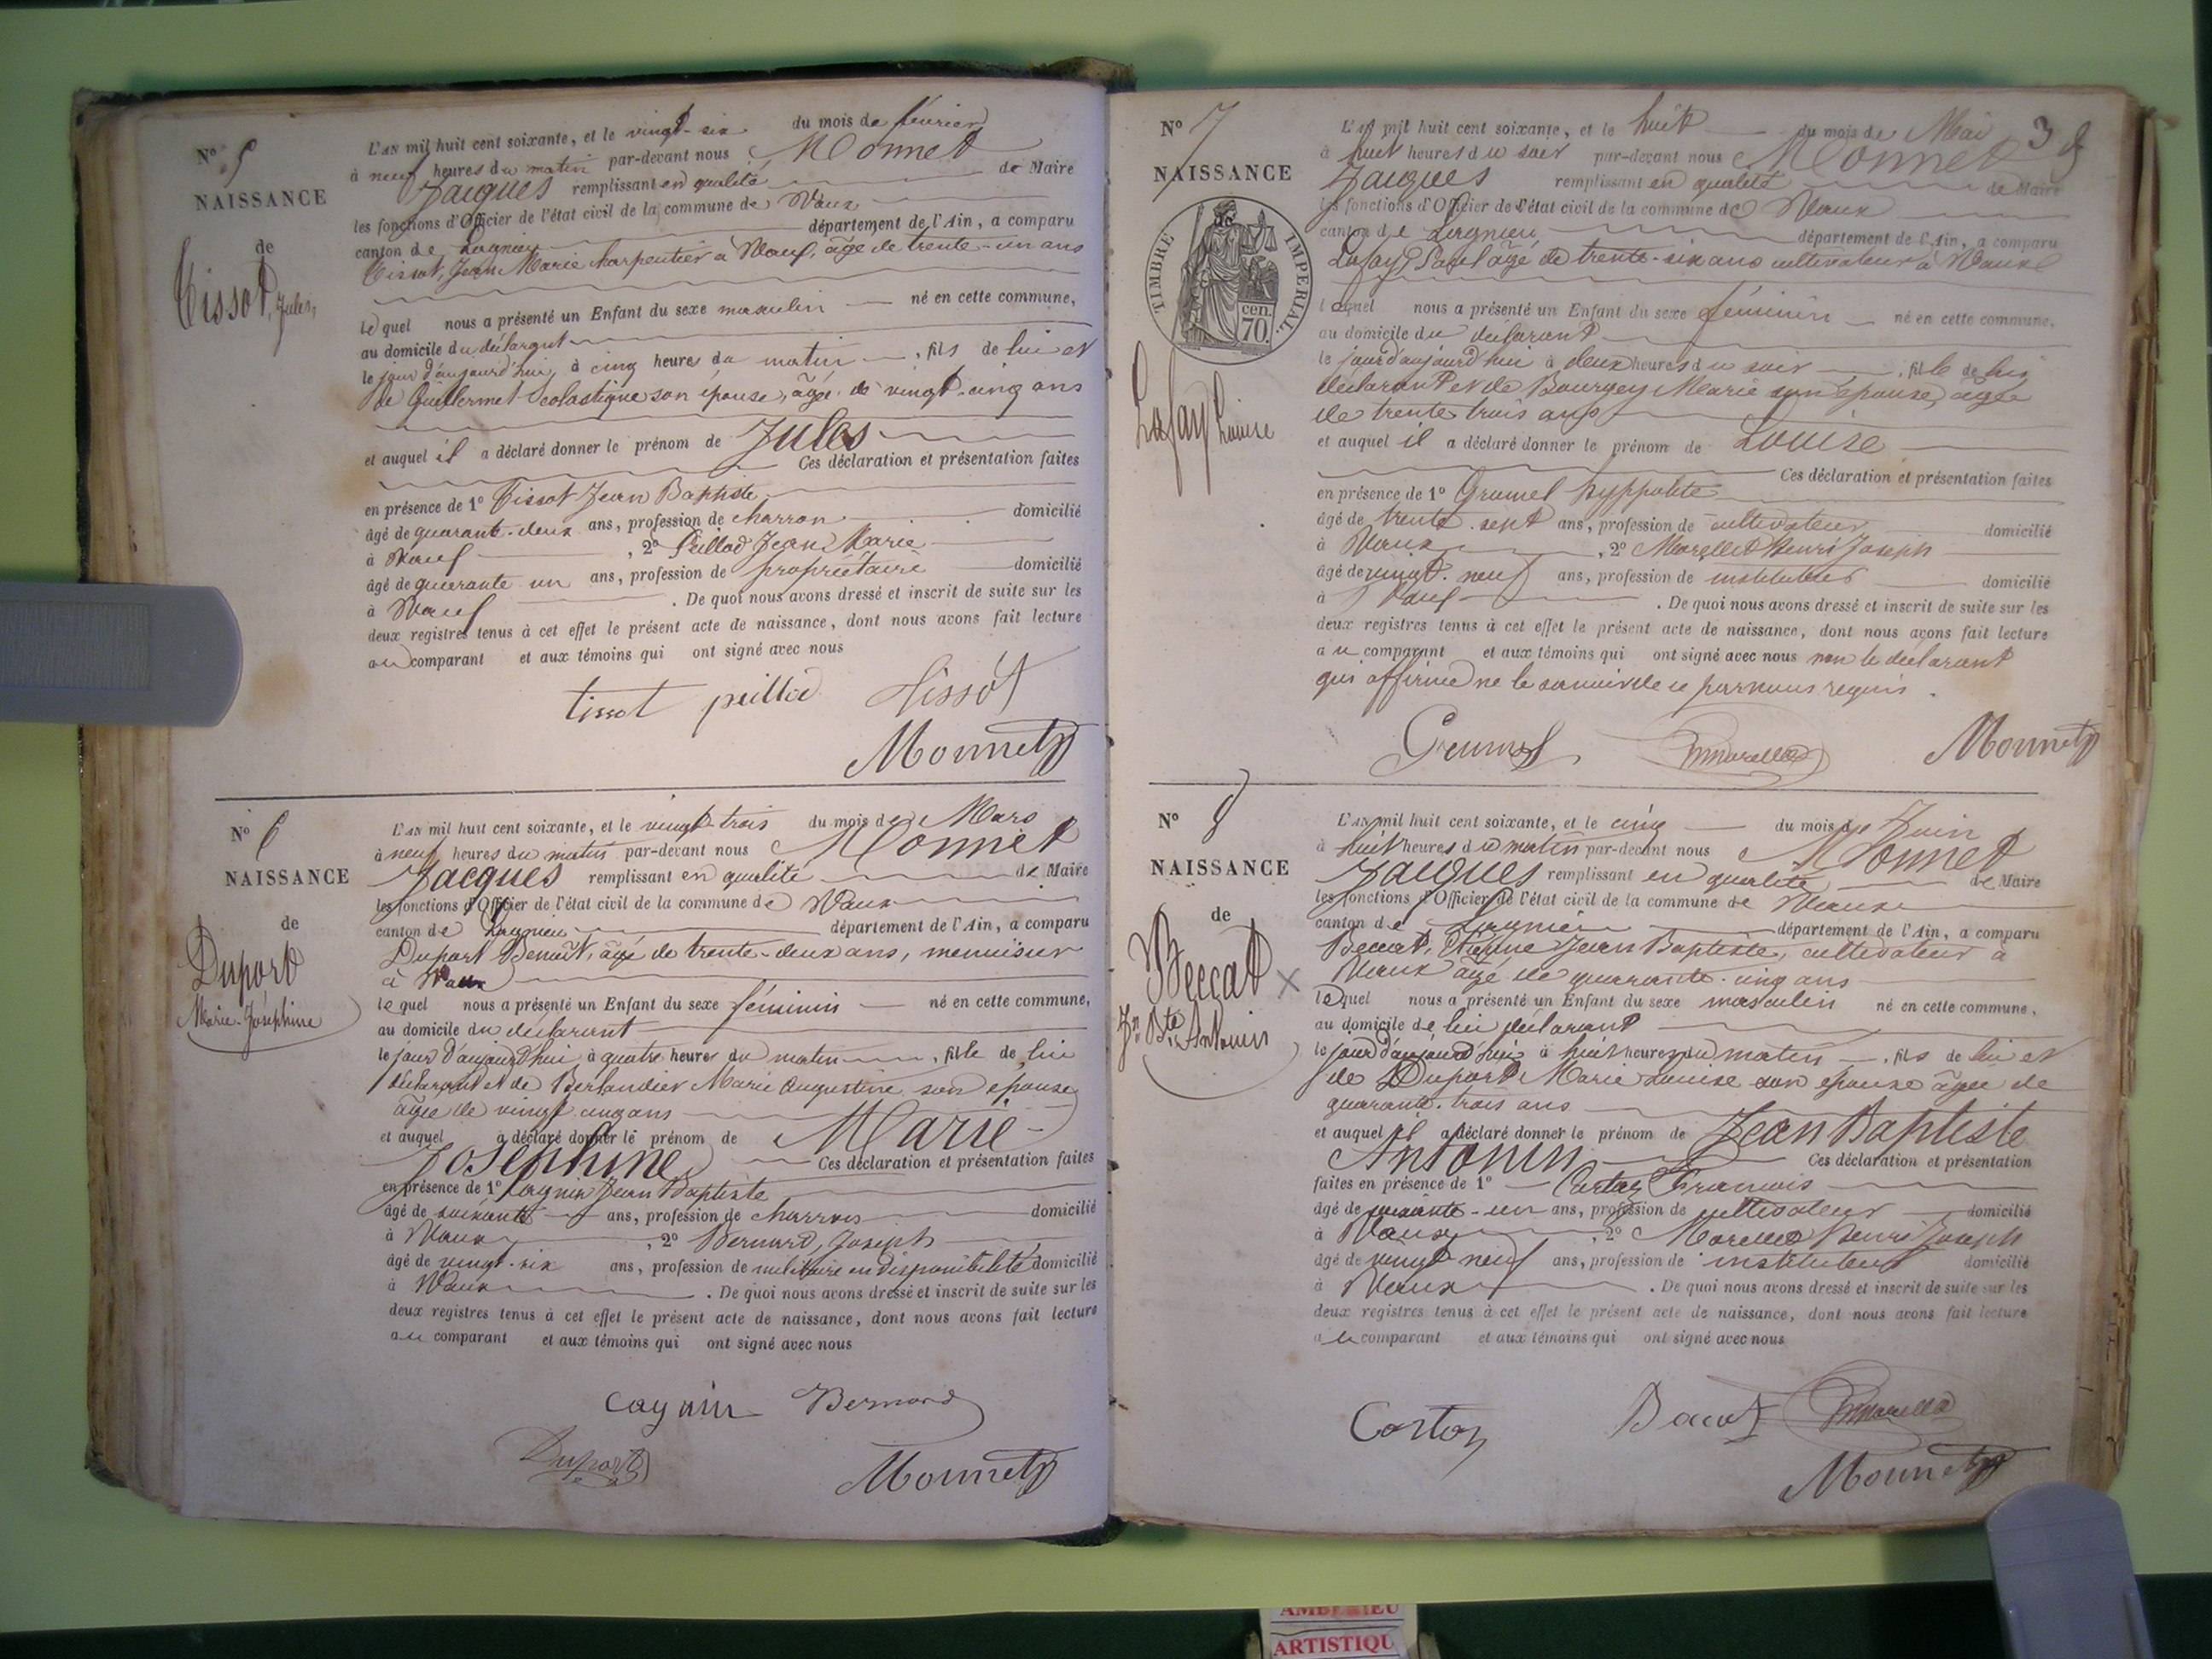 N° 5
NAISSANCE
de
Tissot, Jules,
L'AN mil huit cent soixante, et le vingt-six du mois de février
à neuf heures du matin par-devant nous Monnet
Jacques remplissant en qualité de Maire
les fonctions d'Officier de l'état civil de la commune de Vaux
canton de Lagnieu département de l'Ain, a comparu
Tissot, Jean Marie charpentier à Vaux, âgé de trente-un ans
lequel nous a présenté un Enfant du sexe masculin né en cette commune,
au domicile du déclarant
le jour d'aujourd'hui, à cinq heures du matin, fils de lui et
de Guillermet Scolastique son épouse, âgé de vingt-cinq ans
et auquel il a déclaré donner le prénom de Jules
Ces déclaration et présentation faites
en présence de 1° Tissot Jean Baptiste
âgé de quarante-deux ans, profession de charron domicilié
à Vaux, 2° Peillod Jean Marie
âgé de quarante un ans, profession de propriétaire domicilié
à Vaux. De quoi nous avons dressé et inscrit de suite sur les
deux registres tenus à cet effet le présent acte de naissance, dont nous avons fait lecture
au comparant et aux témoins qui ont signé avec nous
tissot peillod Tissot
Monnet
N° 6
NAISSANCE
de
Duport
Marie-Joséphine
L'AN mil huit cent soixante, et le vingt-trois du mois de Mars
à neuf heures du matin par-devant nous Monnet
Jacques remplissant en qualité de Maire
les fonctions d'Officier de l'état civil de la commune de Vaux
canton de Lagnieu département de l'Ain, a comparu
Duport Benoît, âgé de trente-deux ans, menuisier
à Vaux
lequel nous a présenté un Enfant du sexe féminin né en cette commune,
au domicile du déclarant
le jour d'aujourd'hui à quatre heures du matin, fille de lui
déclarant et de Berlandier Marie Augustine son épouse
âgée de vingt cinq ans
et auquel a déclaré donner le prénom de Marie
Joséphine Ces déclaration et présentation faites
en présence de 1° Cagnin Jean Baptiste
âgé de soixante ans, profession de charron domicilié
à Vaux, 2° Bernard, Joseph
âgé de vingt-six ans, profession de militaire en disponibilité domicilié
à Vaux. De quoi nous avons dressé et inscrit de suite sur les
deux registres tenus à cet effet le présent acte de naissance, dont nous avons fait lecture
au comparant et aux témoins qui ont signé avec nous
Cagnin Bernard
Duport
Monnet
N° 7
NAISSANCE
TIMBRE IMPERIAL.
cen.
70.
Lafay Louise
3
L'AN mil huit cent soixante, et le huit du mois de Mai
à huit heures du soir par-devant nous Monnet
Jacques remplissant en qualité de Maire
les fonctions d'Officier de l'état civil de la commune de Vaux
canton de Lagnieu département de l'Ain, a comparu
Lafay Paul âgé de trente-six ans cultivateur à Vaux
lequel nous a présenté un Enfant du sexe féminin né en cette commune,
au domicile du déclarant
le jour d'aujourd'hui à deux heures du soir, fille de lui
déclarant et de Bourgey Marie son épouse, âgée
de trente trois ans
et auquel il a déclaré donner le prénom de Louise
Ces déclaration et présentation faites
en présence de 1° Grumel hyppolite
âgé de trente-sept ans, profession de cultivateur domicilié
à Vaux, 2° Morellet Henri Joseph
âgé de vingt-neuf ans, profession de instituteur domicilié
à Vaux. De quoi nous avons dressé et inscrit de suite sur les
deux registres tenus à cet effet le présent acte de naissance, dont nous avons fait lecture
au comparant et aux témoins qui ont signé avec nous non le déclarant
qui affirme ne le savoir de ce par nous requis.
Grumel Morellet Monnet
N° 8
NAISSANCE
de
Beccat
Jn Bte Antonin
L'AN mil huit cent soixante, et le cinq du mois de Juin
à huit heures du matin par-devant nous Monnet
Jacques remplissant en qualité de Maire
les fonctions d'Officier de l'état civil de la commune de Vaux
canton de Lagnieu département de l'Ain, a comparu
Beccat, Etienne Jean Baptiste, cultivateur à
Vaux âgé de quarante-cinq ans
lequel nous a présenté un Enfant du sexe masculin né en cette commune,
au domicile de lui déclarant
le jour d'aujourd'hui à huit heures du matin, fils de lui et
de Duport Marie Louise son épouse âgée de
quarante-trois ans
et auquel il a déclaré donner le prénom de Jean Baptiste
Antonin Ces déclaration et présentation
faites en présence de 1° Cortaz François
âgé de -un ans, profession de cultivateur domicilié
à Vaux, 2° Morellet Henri Joseph
âgé de vingt neuf ans, profession de instituteur domicilié
à Vaux. De quoi nous avons dressé et inscrit de suite sur les
deux registres tenus à cet effet le présent acte de naissance, dont nous avons fait lecture
au comparant et aux témoins qui ont signé avec nous
Cortaz Morellet
Monnet
AMBERIEU
ARTISTIQU